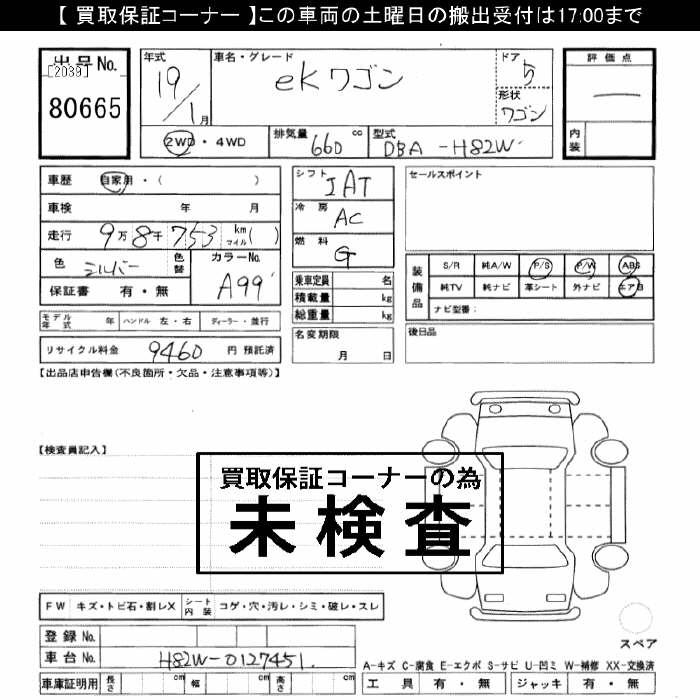 【 買取保証コーナー 】この車両の土曜日の搬出受付は17:00まで
出品No.
[2039]
80665
年式
19/1月
車名・グレード
ekワゴン
ドア
5
形状
ワゴン
評価点
内装
2WD・4WD
排気量 660 cc
型式 DBA-H82W
車歴 自家用・( )
車検 年 月
走行 9万8千753 km マイル( )
色 シルバー 色替
カラーNo. A99
保証書 有・無
シフト IAT
冷房 AC
燃料 G
乗車定員 名
積載量 kg
総重量 kg
セールスポイント
装備品
S/R 純A/W P/S P/W ABS
純TV 純ナビ 革シート 外ナビ エアB
ナビ型番:
モデル年式 年 ハンドル 左・右 ディーラー・並行
名変期限 月 日
後日品
リサイクル料金 9460 円 預託済
【出品店申告欄(不良箇所・欠品・注意事項等)】
【検査員記入】
買取保証コーナーの為
未検査
FW キズ・トビ石・割レX シート内装 コゲ・穴・汚レ・シミ・破レ・スレ
登録No.
車台No. H82W-0127451
車庫証明用 長さ cm 幅 cm 高さ cm
スペア
A-キズ C-腐食 E-エクボ S-サビ U-凹ミ W-補修 XX-交換済
工具 有・無 ジャッキ 有・無